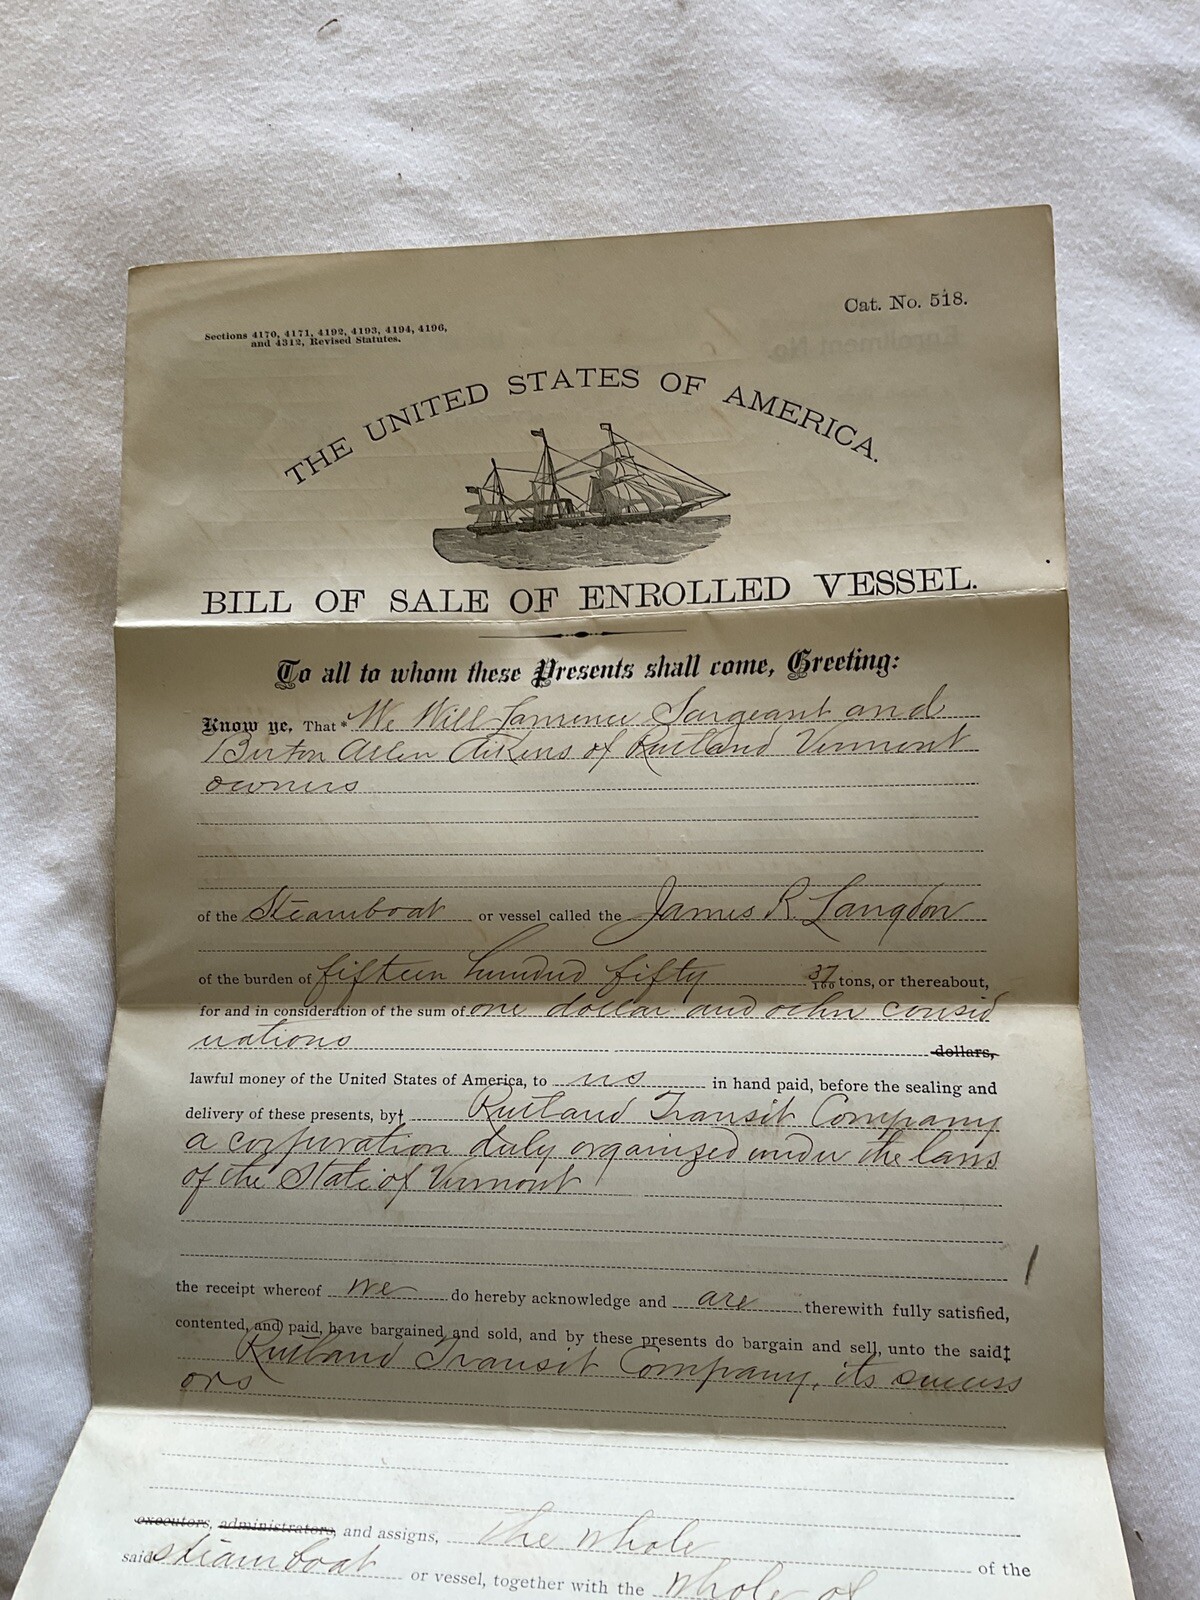 Cat. No. 518.
Sections 4170, 4171, 4192, 4193, 4194, 4196,
and 4312, Revised Statutes.
THE UNITED STATES OF AMERICA.
BILL OF SALE OF ENROLLED VESSEL.
To all to whom these Presents shall come, Greeting:
Know ye, That * We Will Lawrence Sargeant and
Burton Allen Aikens of Rutland Vermont
owners
of the Steamboat or vessel called the James R. Langdon
of the burden of fifteen hundred fifty 37/100 tons, or thereabout,
for and in consideration of the sum of one dollar and other consid
erations dollars,
lawful money of the United States of America, to us in hand paid, before the sealing and
delivery of these presents, by† Rutland Transit Company
a corporation duly organized under the laws
of the State of Vermont
the receipt whereof we do hereby acknowledge and are therewith fully satisfied,
contented, and paid, have bargained and sold, and by these presents do bargain and sell, unto the said‡
Rutland Transit Company, its success
ors
executors, administrators, and assigns, the whole of the
said steamboat or vessel, together with the whole of